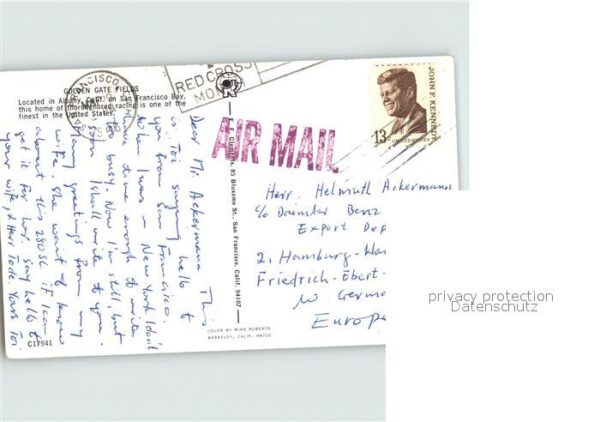 GOLDEN GATE FIELDS
Located in Albany, Calif. on San Francisco Bay,
this home of thoroughbred racing is one of the
finest in the United States.
RED CROSS
MO
AIR MAIL
JOHN F. KENNEDY
13¢
UNITED STATES
Dear Mr. Ackermann This
is Toi saying hello to
you from San Francisco.
When I was in New York I don't
have time enough to write
too busy. Now I'm still, but
soon I shall write to you.
Many greetings from my
wife. She want to know
about this 280SE if I can
get it for her. Say hello to
your wife, & Herr Tode Yours Toi
C17941
E. F. Clements, 85 Bluxome St., San Francisco, Calif. 94107
COLOR BY MIKE ROBERTS
BERKELEY, CALIF. 94710
Herr. Helmuth Ackermann
c/o Daimler Benz
Export Dep
2, Hamburg-Wan
Friedrich-Ebert-
W. Germa
Europe
privacy protection
Datenschutz